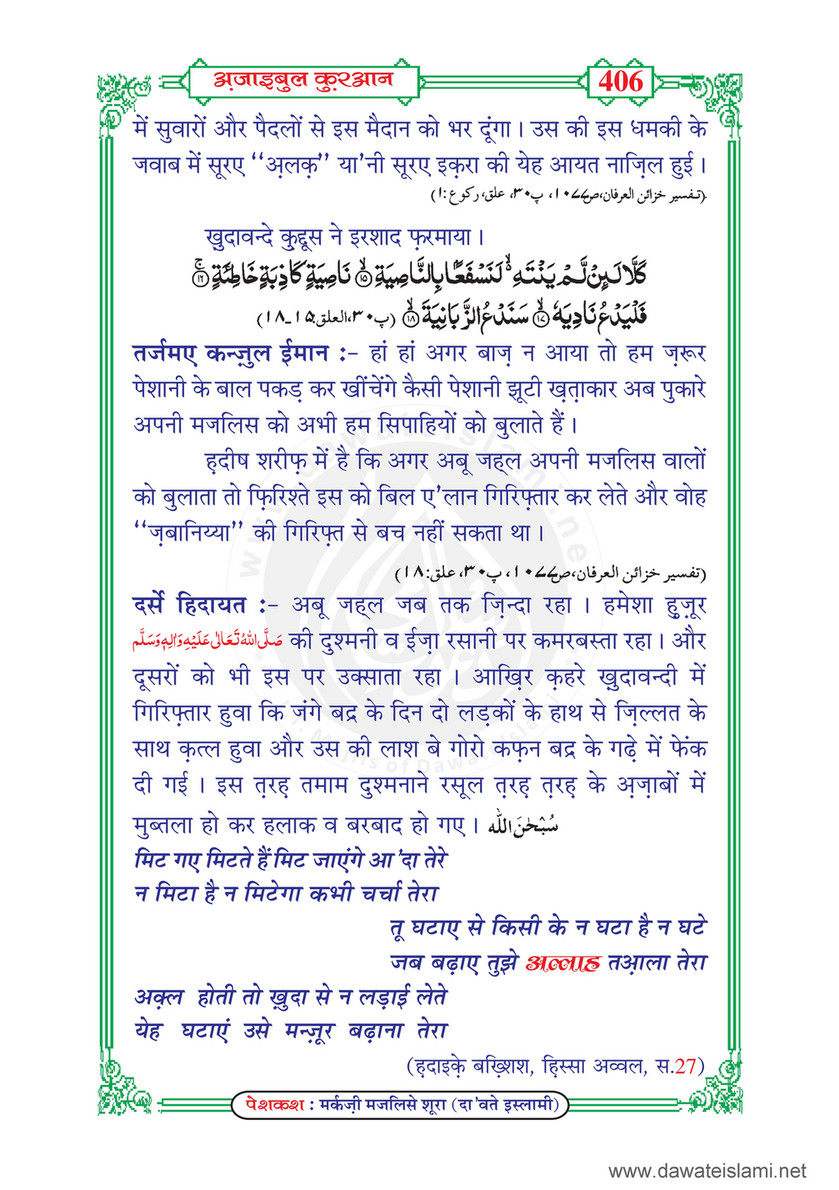 अ़जाइबुल क़ुरआन
406
में सुवारों और पैदलों से इस मैदान को भर दूंगा । उस की इस धमकी के
जवाब में सूरए ‘‘अ़लक़’’ या’नी सूरए इक़रा की येह आयत नाज़िल हुई ।
(تفسیر خزائن العرفان،ص۱۰۷۷، پ۳۰، علق، رکوع:۱)
ख़ुदावन्दे क़ुद्दूस ने इरशाद फ़रमाया ।
كَلَّا لَئِنْ لَّمْ يَنْتَهِ ۙ۬ لَنَسْفَعًۢا بِالنَّاصِيَةِ ۙ﴿۱۵﴾ نَاصِيَةٍ كَاذِبَةٍ خَاطِئَةٍ ۚ﴿۱۶﴾
فَلْيَدْعُ نَادِيَهٗ ۙ﴿۱۷﴾ سَنَدْعُ الزَّبَانِيَةَ ۙ﴿۱۸﴾ (پ۳۰، العلق:۱۵۔۱۸)
तर्जमए कन्ज़ुल ईमान :- हां हां अगर बाज़ न आया तो हम ज़रूर
पेशानी के बाल पकड़ कर खींचेंगे कैसी पेशानी झूटी ख़त़ाकार अब पुकारे
अपनी मजलिस को अभी हम सिपाहियों को बुलाते हैं ।
ह़दीष शरीफ़ में है कि अगर अबू जह्ल अपनी मजलिस वालों
को बुलाता तो फ़िरिश्ते इस को बिल ए’लान गिरिफ़्तार कर लेते और वोह
‘‘ज़बानिय्या’’ की गिरिफ़्त से बच नहीं सकता था ।
(تفسیر خزائن العرفان،ص۱۰۷۷، پ۳۰، علق:۱۸)
दर्से हिदायत :- अबू जह्ल जब तक ज़िन्दा रहा । हमेशा हुज़ूर
صَلَّى اللهُ تَعَالٰى عَلَيْهِ وَاٰلِهٖ وَسَلَّم की दुश्मनी व ईज़ा रसानी पर कमरबस्ता रहा । और
दूसरों को भी इस पर उक्साता रहा । आख़िर क़हरे ख़ुदावन्दी में
गिरिफ़्तार हुवा कि जंगे बद्र के दिन दो लड़कों के हाथ से ज़िल्लत के
साथ क़त्ल हुवा और उस की लाश बे गोरो कफ़न बद्र के गढ़े में फेंक
दी गई । इस त़रह़ तमाम दुश्मनाने रसूल त़रह़ त़रह़ के अ़ज़ाबों में
मुब्तला हो कर हलाक व बरबाद हो गए । سُبْحٰنَ اللّٰه
मिट गए मिटते हैं मिट जाएंगे आ’दा तेरे
न मिटा है न मिटेगा कभी चर्चा तेरा
तू घटाए से किसी के न घटा है न घटे
जब बढ़ाए तुझे अल्लाह तआ़ला तेरा
अक़्ल होती तो ख़ुदा से न लड़ाई लेते
येह घटाएं उसे मन्ज़ूर बढ़ाना तेरा
(ह़दाइक़े बख़्शिश, हिस्सा अव्वल, स.27)
पेशकश : मर्कज़ी मजलिसे शूरा (दा’वते इस्लामी)
www.dawateislami.net